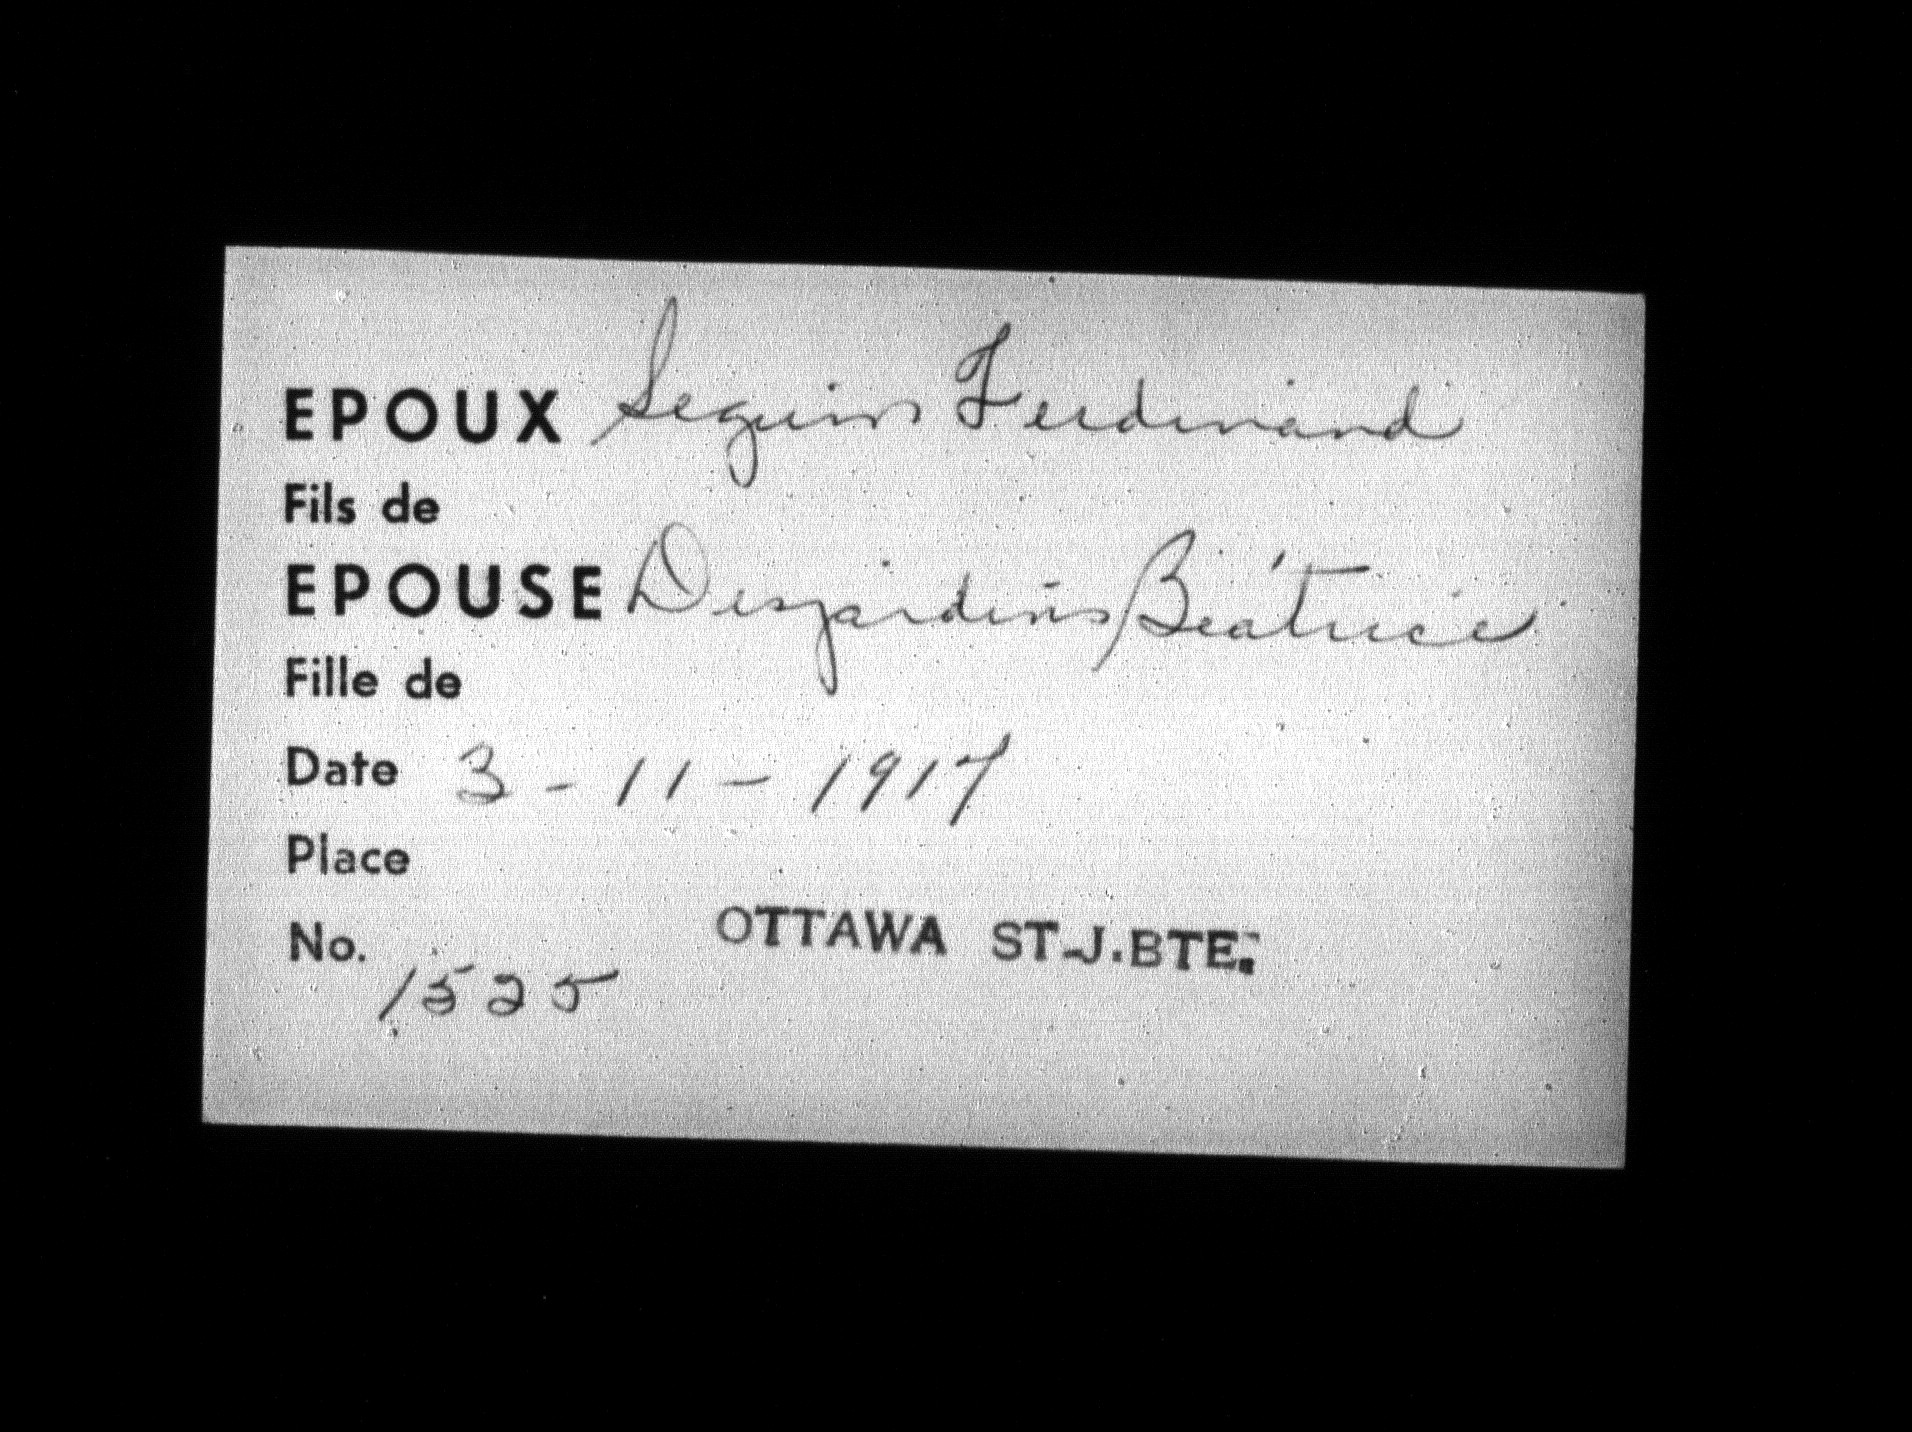 EPOUX Seguin Ferdinand
Fils de
EPOUSE Desjardins Béatrice
Fille de
Date 3-11-1917
Place
OTTAWA ST-J.BTE.
No.
1525